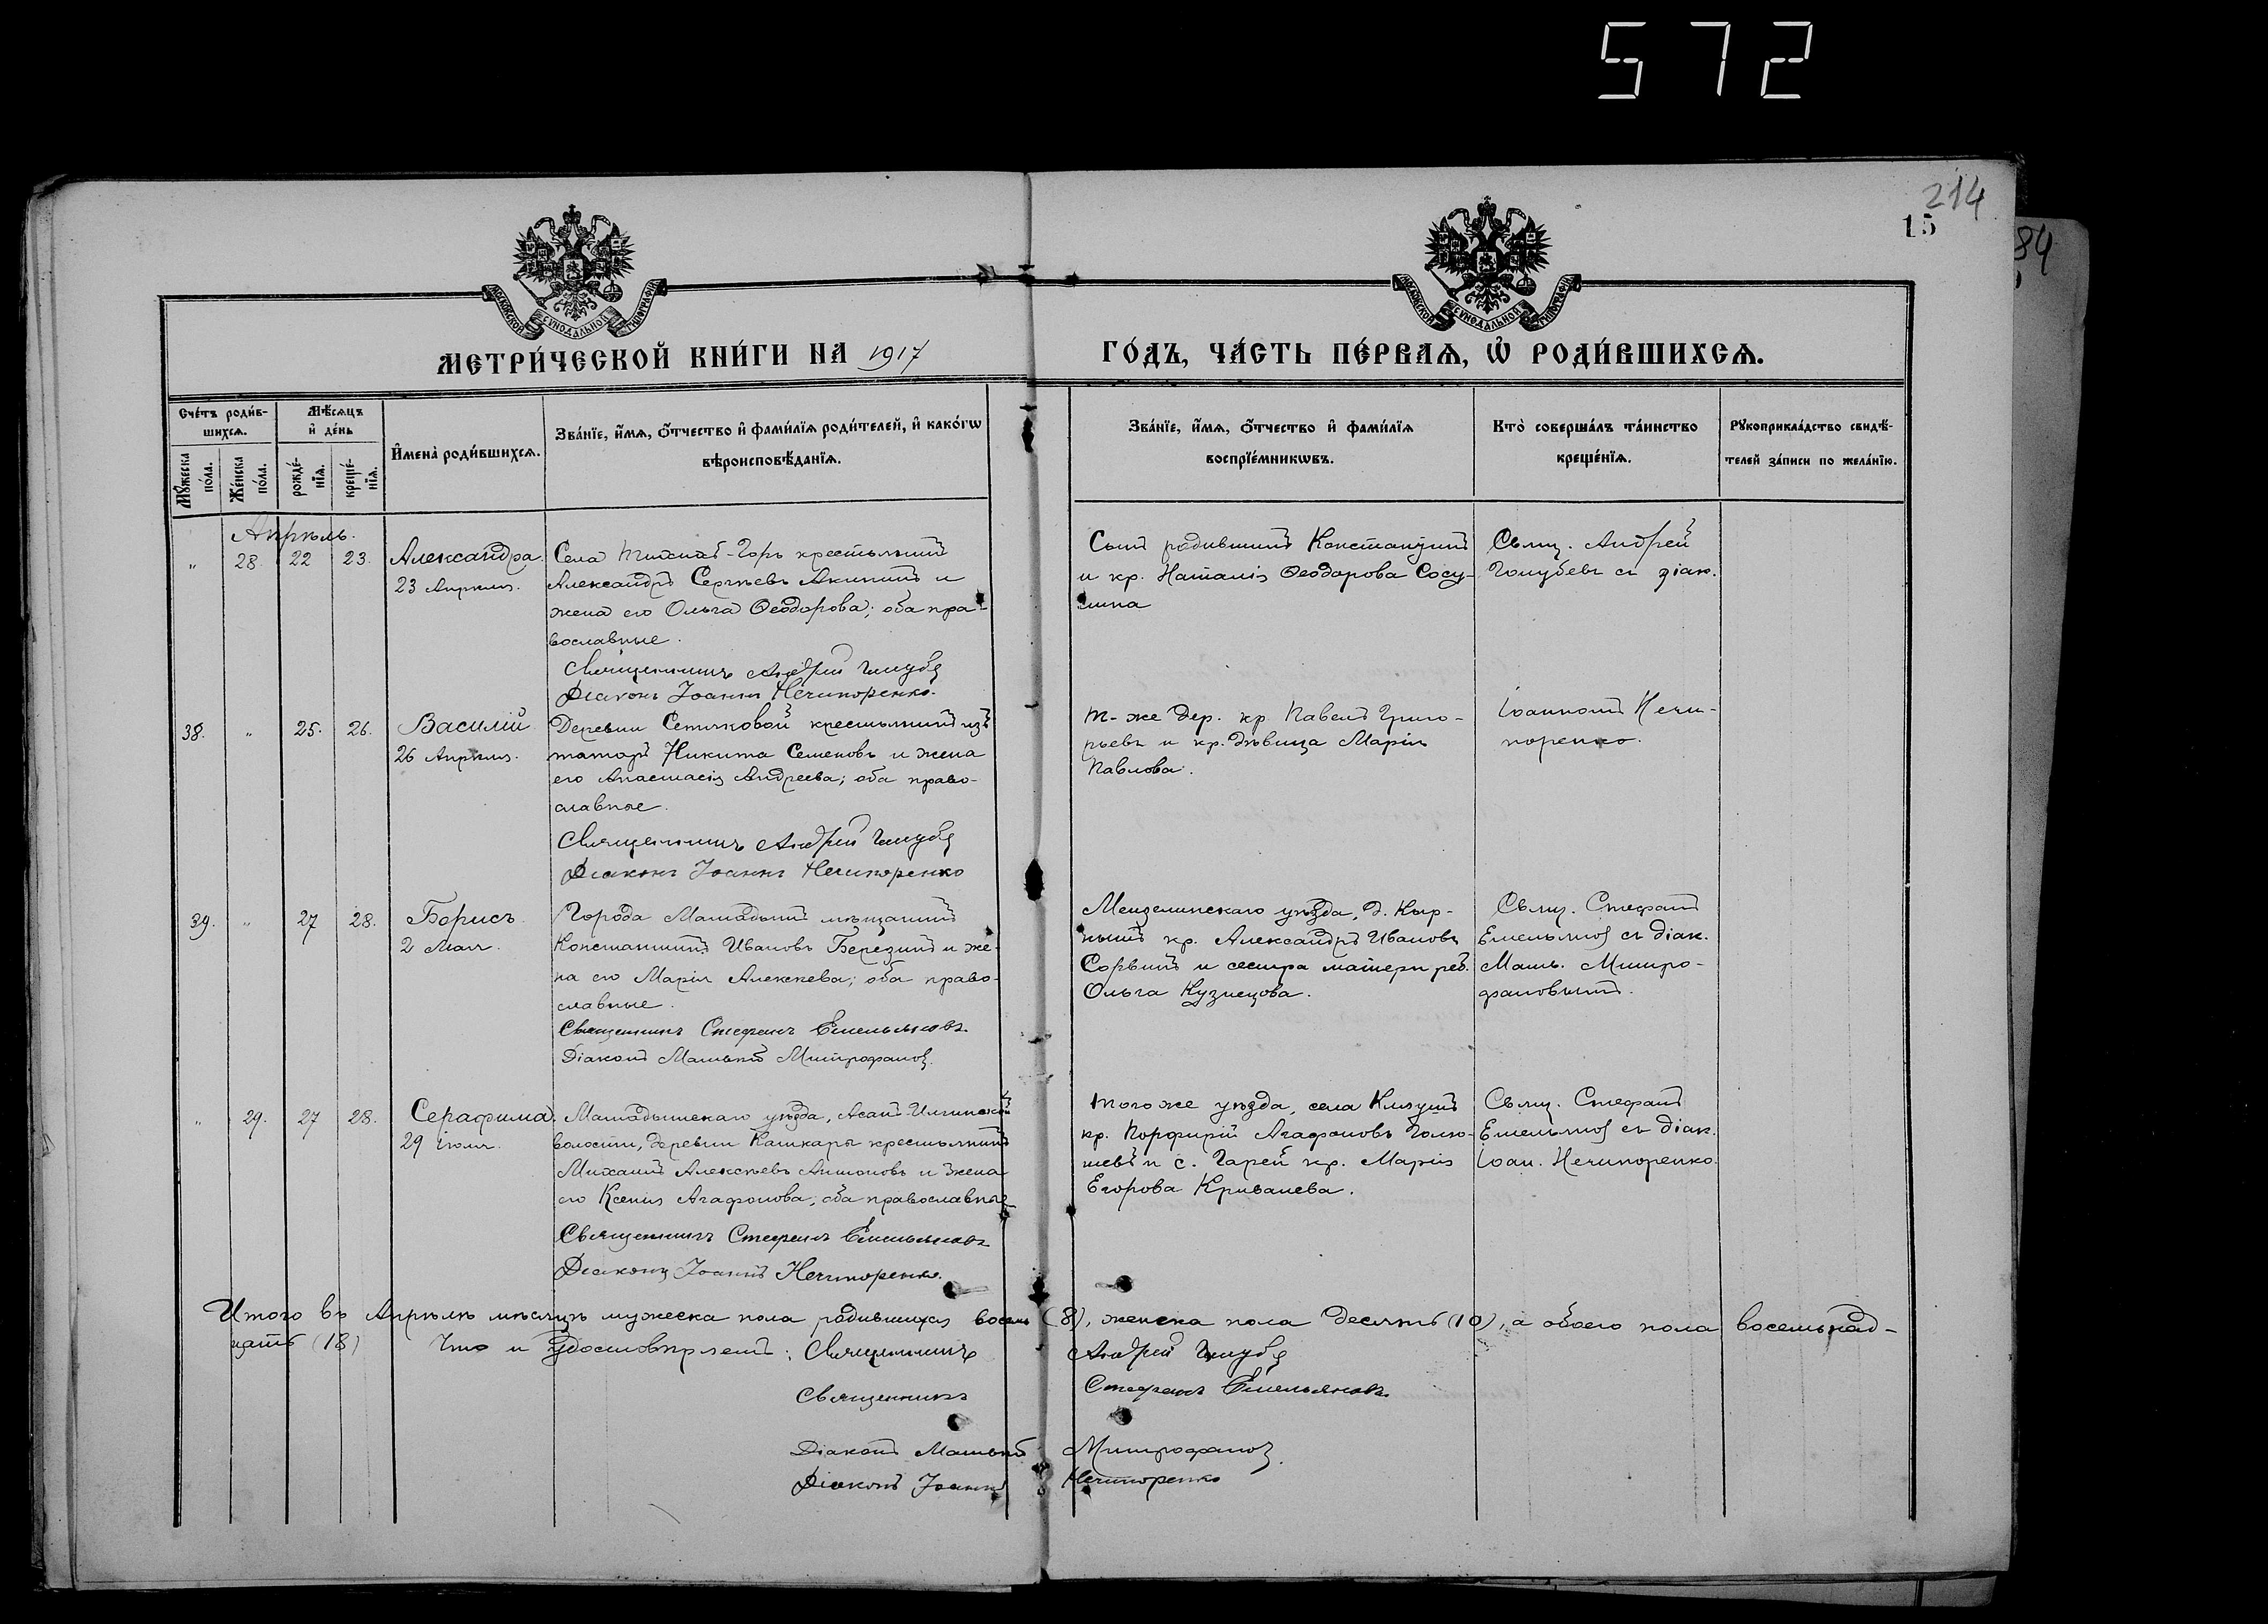 572
214
15
84
МОСКОВСКОЙ СУНОДАЛЬНОЙ ТИПОГРАФІИ
МОСКОВСКОЙ СУНОДАЛЬНОЙ ТИПОГРАФІИ
МЕТРИ́ЧЕСКОЙ КНИ́ГИ НА 1917 ГО́ДЪ, ЧА́СТЬ ПЕ́РВАѦ, Ѡ҆ РОДИ́ВШИХСѦ.
Сче́тъ роди́в-
шихсѧ.
Мꙋ́жеска по́ла.
Же́нска по́ла.
Мѣ́сѧцъ
и҆ де́нь
рожде́-
нїѧ.
креще́-
нїѧ.
И҆мена̀ роди́вшихсѧ.
Зва́нїе, и҆́мѧ, ѻ҆́тчество и҆ фами́лїѧ роди́телей, и҆ како́гѡ
вѣроисповѣ́данїѧ.
Зва́нїе, и҆́мѧ, ѻ҆́тчество и҆ фами́лїѧ
воспрїе́мникѡвъ.
Кто̀ соверша́лъ та́инство
креще́нїѧ.
Рꙋкоприкла́дство свидѣ́-
телей за́писи по жела́нїю.
Апрѣль.
" 28. 22 23.
Александра.
23 Апрѣля.
Села Горъ крестьянинъ
Александръ Сергѣевъ Акининъ и
жена его Ольга Ѳеодорова; оба пра-
вославные.
Священникъ Андрей Голубев
Діаконъ Іоаннъ Нечипоренко.
Сынъ родившій Константинъ
и кр. Наталія Ѳеодорова Сосу-
нина
Свящ. Андрей
Голубевъ съ діак.
38. " 25. 26.
Василій
26 Апрѣля.
Деревни Сетяковой крестьянинъ изъ
татаръ Никита Семеновъ и жена
его Анастасія Андреева; оба право-
славные.
Священникъ Андрей Голубев
Діаконъ Іоаннъ Нечипоренко
т-же дер. кр. Павелъ Григо-
рьевъ и кр. дѣвица Марія
Павлова.
Іоанномъ Нечи-
поренко.
39. " 27 28.
Борисъ
2 Мая.
Города Мамадышъ мѣщанинъ
Константинъ Ивановъ Березинъ и же-
на его Марія Алексѣева; оба право-
славные.
Священникъ Стефанъ Емельяновъ
Діаконъ Матвѣй Митрофанов.
Мензелинскаго уѣзда, д.
кр. Александръ Ивановъ
и сестра матери реб.
Ольга Кузнецова.
Свящ. Стефанъ
Емельянов съ діак.
Матв. Митро-
фановымъ.
" 29. 27 28.
Серафима.
29 Іюля.
Мамадышскаго уѣзда, Асанъ Илгинской
волости, деревни Кашкары крестьянинъ
Михаилъ Алексѣевъ Антоновъ и жена
его Ксенія Агафонова; оба православные
Священникъ Стефанъ Емельяновъ
Діаконъ Іоаннъ Нечипоренко.
Того же уѣзда, села
кр. Порфирій Агафоновъ
и с. Гарей кр. Марія
Егорова Криванева.
Свящ. Стефанъ
Емельянов съ діак.
Іоан. Нечипоренко.
Итого въ Апрѣлѣ мѣсяцѣ мужеска пола родившихся восемь (8), женска пола десять (10), а обоего пола восемьнад-
цать (18) Что и удостовѣряемъ: Священникъ Андрей Голубев
Священникъ Стефанъ Емельяновъ
Діаконъ Матвѣй Митрофанов.
Діаконъ Іоаннъ Нечипоренко